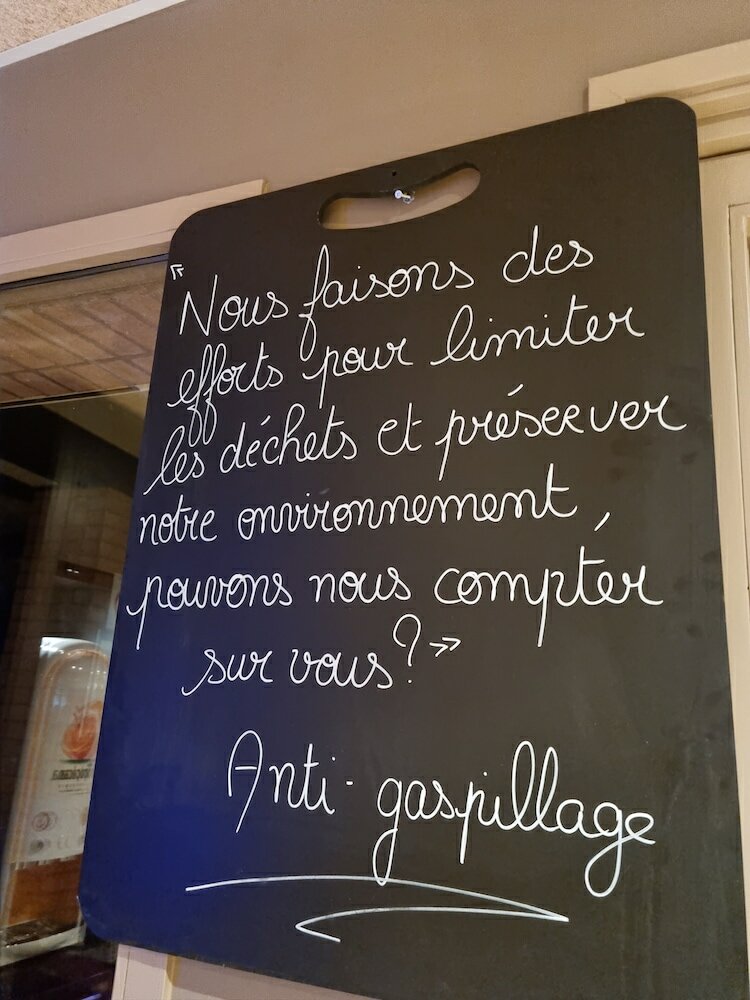 « Nous faisons des
efforts pour limiter
les déchets et préserver
notre environnement,
pouvons nous compter
sur vous? »
Anti-gaspillage